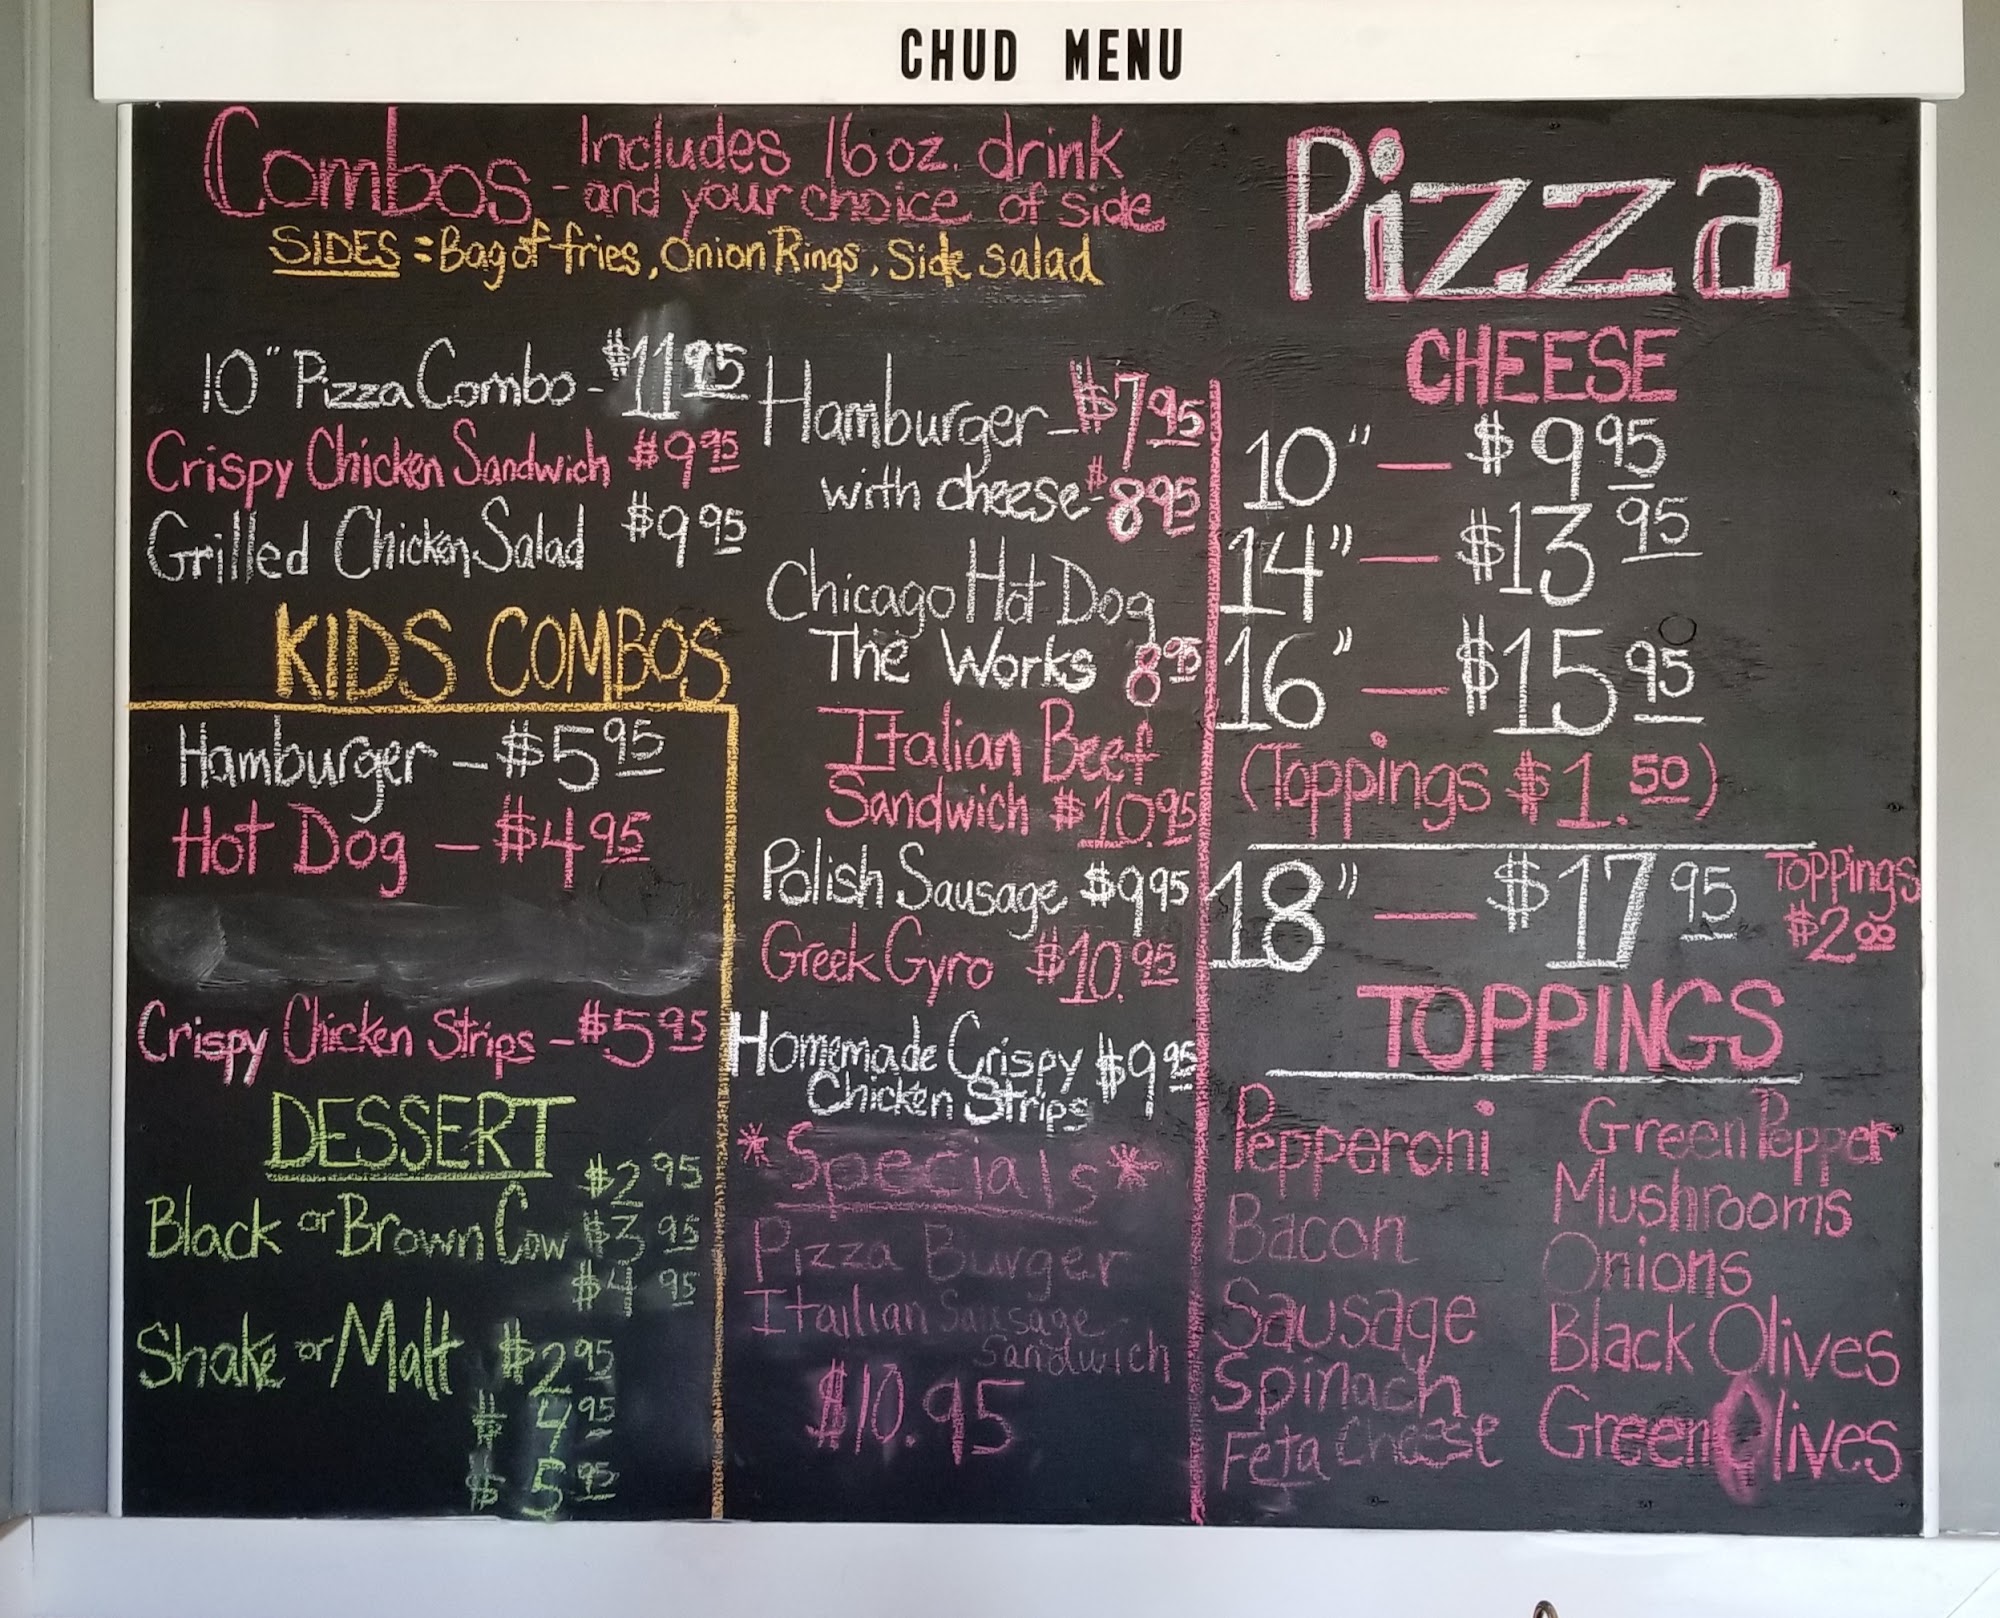 CHUD MENU
Combos - Includes 16 oz. drink
and your choice of side
SIDES = Bag of fries, Onion Rings, Side salad
10" Pizza Combo - $11 95
Crispy Chicken Sandwich $9 95
Grilled Chicken Salad $9 95
KIDS COMBOS
Hamburger - $5 95
Hot Dog - $4 95
Crispy Chicken Strips - $5 95
DESSERT
$2 95
Black or Brown Cow $3 95
$4 95
Shake or Malt $2 95
$4 95
$5 95
Hamburger - $7 95
with cheese - $8 95
Chicago Hot Dog
The Works 8 95
Italian Beef
Sandwich $10.95
Polish Sausage $9 95
Greek Gyro $10.95
Homemade Crispy $9 95
Chicken Strips
*Specials*
Pizza Burger
Itailian Sausage
Sandwich
$10.95
Pizza
CHEESE
10" — $9 95
14" — $13 95
16" — $15 95
(Toppings $1.50)
18" — $17 95 Toppings
$2 00
TOPPINGS
Pepperoni
Bacon
Sausage
Spinach
Feta Cheese
Green Pepper
Mushrooms
Onions
Black Olives
Green Olives